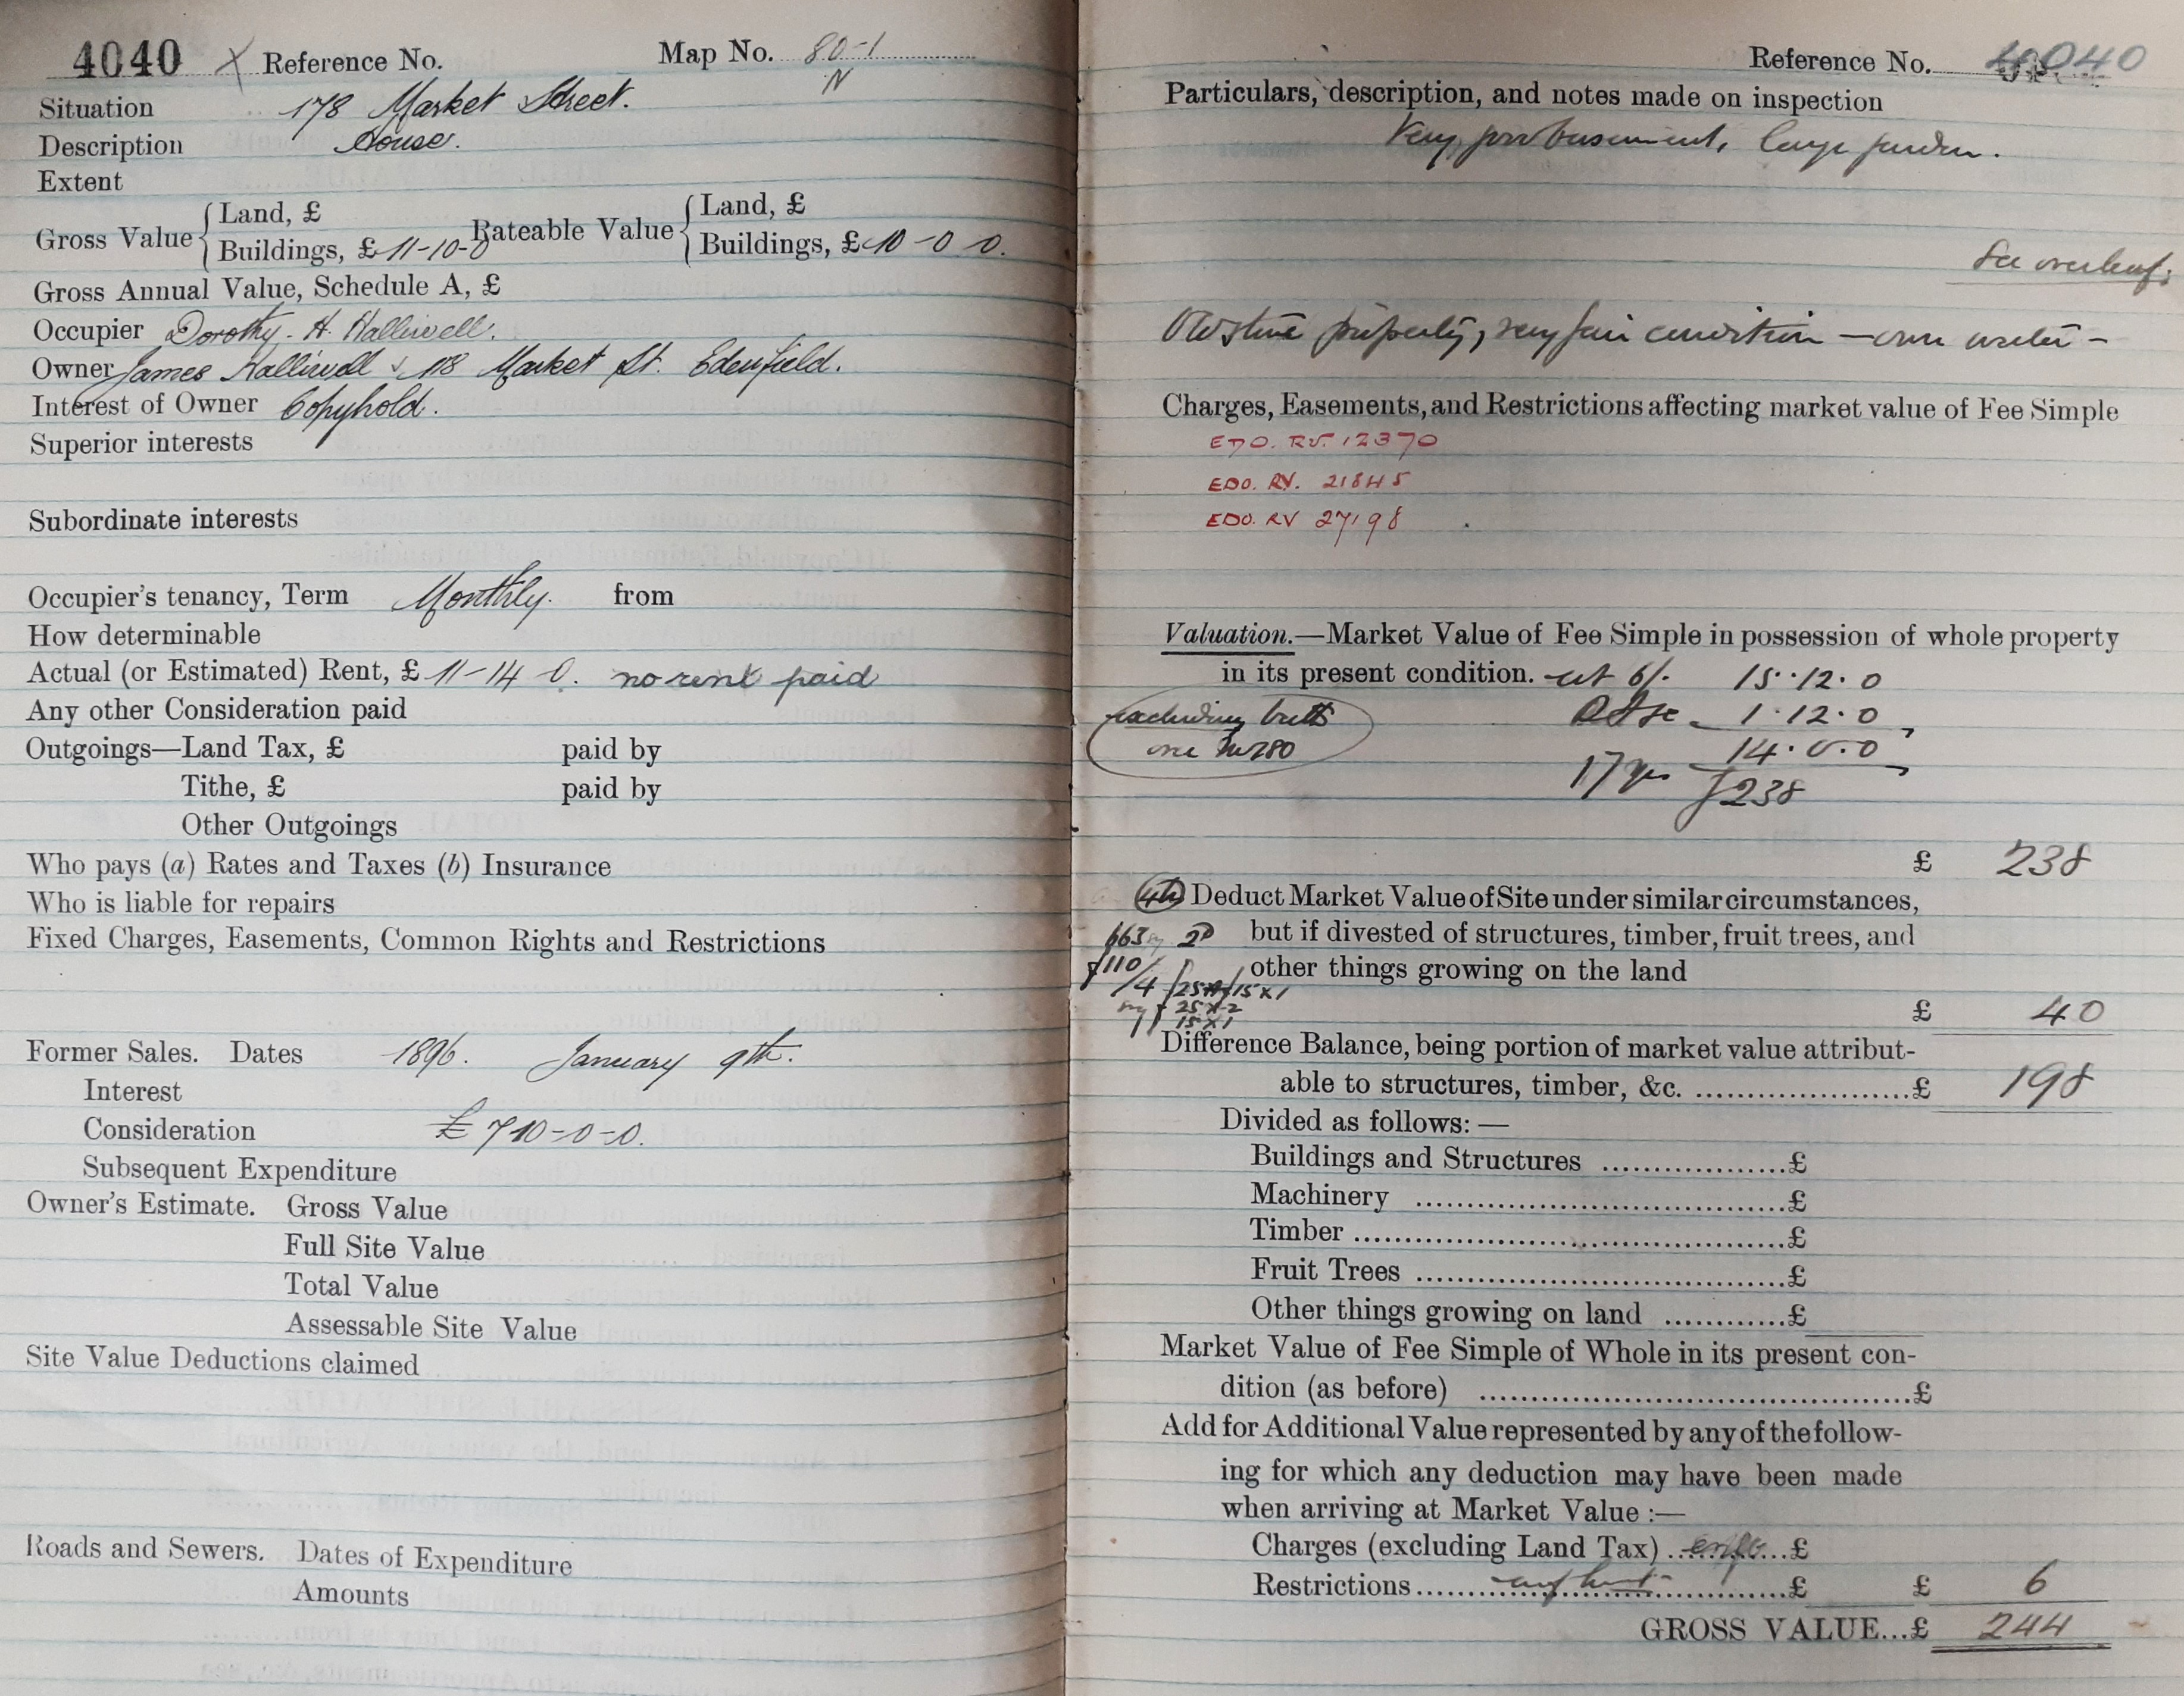 4040 X Reference No. Map No. 80-1
N
Situation 178 Market Street.
Description House.
Extent
Gross Value { Land, £
Buildings, £ 11-10-0
Rateable Value { Land, £
Buildings, £ 10-0-0.
Gross Annual Value, Schedule A, £
Occupier Dorothy. H. Halliwell.
Owner James Halliwell 118 Market St. Edenfield.
Interest of Owner Copyhold.
Superior interests
Subordinate interests
Occupier's tenancy, Term Monthly. from
How determinable
Actual (or Estimated) Rent, £ 11-14-0. no rent paid
Any other Consideration paid
Outgoings—Land Tax, £ paid by
Tithe, £ paid by
Other Outgoings
Who pays (a) Rates and Taxes (b) Insurance
Who is liable for repairs
Fixed Charges, Easements, Common Rights and Restrictions
Former Sales. Dates 1896. January 9th.
Interest
Consideration £710-0-0.
Subsequent Expenditure
Owner's Estimate. Gross Value
Full Site Value
Total Value
Assessable Site Value
Site Value Deductions claimed
Roads and Sewers. Dates of Expenditure
Amounts
Reference No. 4040
Particulars, description, and notes made on inspection
Very poor basement, large garden.
See overleaf.
Old stone property, very fair condition — own water —
Charges, Easements, and Restrictions affecting market value of Fee Simple
EDO. RV. 12370
EDO. RV. 21845
EDO. RV 27198
Valuation.—Market Value of Fee Simple in possession of whole property
in its present condition. at 6/. 15.12.0
excluding 1.12.0
one 14.0.0
17 yrs £238
£ 238
Deduct Market Value of Site under similar circumstances,
663 but if divested of structures, timber, fruit trees, and
110 other things growing on the land
25 X 2
15 X 1
£ 40
Difference Balance, being portion of market value attribut-
able to structures, timber, &c. ....................£ 198
Divided as follows: —
Buildings and Structures ..................£
Machinery ....................................£
Timber ..........................................£
Fruit Trees ....................................£
Other things growing on land ............£
Market Value of Fee Simple of Whole in its present con-
dition (as before) ..........................................£
Add for Additional Value represented by any of the follow-
ing for which any deduction may have been made
when arriving at Market Value :—
Charges (excluding Land Tax) ............£
Restrictions ....................................£ £ 6
GROSS VALUE...£ 244